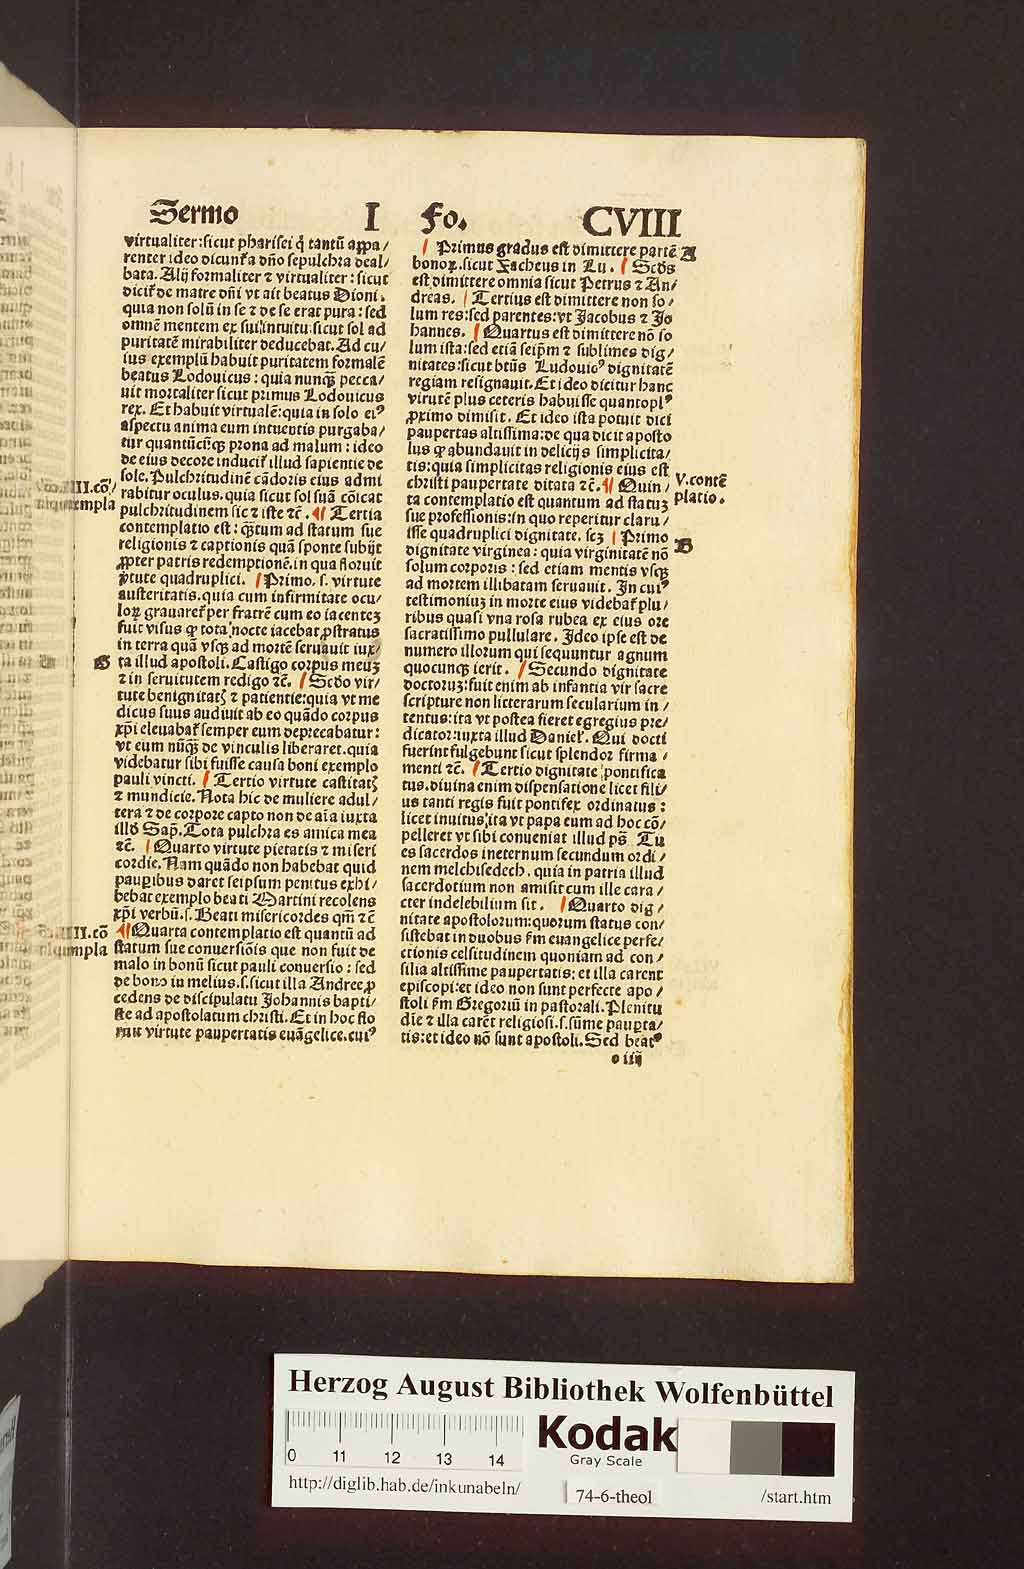 Sermo I Fo. CVIII
virtualiter:sicut pharisei q̃ tantũ appa/
renter ideo dicunt᷑ a dño sepulchra deal/
bata. Alij formaliter ⁊ virtualiter: sicut
dicit᷑ de matre dñi vt ait beatus Dioni.
quia non solũ in se ⁊ de se erat pura: sed
omnẽ mentem ex sui intuitu:sicut sol ad
puritatẽ mirabiliter deducebat. Ad cu/
ius exemplũ habuit puritatem formalẽ
beatus Lodouicus: quia nunqᷓ pecca/
uit mortaliter sicut primus Lodouicus
rex. Et habuit virtualẽ:quia in solo eiꝰ
aspectu anima eum intuentis purgaba/
tur quantũcũqꝫ prona ad malum: ideo
de eius decore inducit᷑ illud sapientie de
sole. Pulchritudinẽ cãdoris eius admi
rabitur oculus. quia sicut sol suã cõicat
pulchritudinem sic ⁊ iste ⁊ẽ. ¶ Tertia
contemplatio est: qᷓtum ad statum sue
religionis ⁊ captionis quã sponte subijt
ꝓpter patris redemptionẽ. in qua floruit
ṽtute quadruplici. Primo. s. virtute
austeritatis. quia cum infirmitate ocu/
loꝝ grauaret᷑ per fratrẽ cum eo iacenteꝫ
fuit visus ꝙ tota nocte iacebat ꝓstratus
in terra quã vsqꝫ ad mortẽ seruauit iux/
ta illud apostoli. Castigo corpus meuꝫ
⁊ in seruitutem redigo ⁊ẽ. Scđo vir/
tute benignitatꝭ ⁊ patientie:quia vt me
dicus suus audiuit ab eo quãdo corpus
xp̃i eleuabat᷑ semper eum deprecabatur:
vt eum nũqᷓ de vinculis liberaret. quia
videbatur sibi fuisse causa boni exemplo
pauli vincti. Tertio virtute castitatꝭ
⁊ mundicie. Nota hic de muliere adul/
tera ⁊ de corpore capto non de aĩa iuxta
illđ Sap̃. Tota pulchra es amica mea
⁊ẽ. Quarto virtute pietatis ⁊ miseri
cordie. Nam quãdo non habebat quid
pauꝑibus daret seipsum penitus exhi/
bebat exemplo beati Martini recolens
xp̃i verbũ. s. Beati misericordes qm̃ ⁊ẽ
¶Quarta contemplatio est quantũ ad
statum sue conuersiõis que non fuit de
malo in bonũ sicut pauli conuersio: sed
de bono in melius. s. sicut illa Andree ꝓ
cedens de discipulatu Johannis bapti/
ste ad apostolatum christi. Et in hoc flo
ruit virtute paupertatis euãgelice. cuiꝰ
B
Primus gradus est dimittere partẽ A
bonoꝝ. sicut Zacheus in Lu. Scđs
est dimittere omnia sicut Petrus ⁊ An/
dreas. Tertius est dimittere non so/
lum res:sed parentes:vt Jacobus ⁊ Jo
hannes. Quartus est dimittere nõ so
lum ista:sed etiã seip̃m ⁊ sublimes dig/
nitates:sicut btũs Ludouicꝰ dignitatẽ
regiam resignauit. Et ideo dicitur hanc
virutẽ plus ceteris habuisse quanto plꝰ
ꝓximo dimisit. Et ideo ista potuit dici
paupertas altissima:de qua dicit aposto
lus ꝙ abundauit in delicijs simplicita/
tis:quia simplicitas religionis eius est
christi paupertate ditata ⁊ẽ. ¶ Quin/
ta contemplatio est quantum ad statuꝫ
sue professionis:in quo reperitur claru/
isse quadruplici dignitate. seꝫ Primo
dignitate virginea: quia virginitatẽ nõ
solum corporis: sed etiam mentis vsqꝫ
ad mortem illibatam seruauit. In cuiꝰ
testimoniuꝫ in morte eius videbat᷑ plu/
ribus quasi vna rosa rubea ex eius ore
sacratissimo pullulare. Ideo ipse est de
numero illorum qui sequuntur agnum
quocunqꝫ ierit. Secundo dignitate
doctoruꝫ:fuit enim ab infantia vir sacre
scripture non litterarum secularium in/
tentus:ita vt postea fieret egregius pre/
dicator:iuxta illud Danieɫ. Qui docti
fuerint fulgebunt sicut splendor firma/
menti ⁊ẽ. Tertio dignitate pontifica
tus. diuina enim dispensatione licet fili/
us tanti regis fuit pontifex ordinatus:
licet inuitus:ita vt papa eum ad hoc cõ/
pelleret vt sibi conueniat illud ps̃ Tu
es sacerdos ineternum secundum ordi/
nem melchisedech. quia in patria illud
sacerdotium non amisit cum ille cara/
cter indelebilium sit. Quarto dig/
nitate apostolorum:quorum status con/
sistebat in duobus ẜm euangelice perfe/
ctionis celsitudinem quoniam ad con/
silia altissime paupertatis: et illa carent
episcopi:et ideo non sunt perfecte apo/
stoli ẜm Gregoriũ in pastorali. Plenitu
dĩe ⁊ illa carẽt religiosi. s. sũme pauꝑta/
tis:et ideo nõ sunt apostoli. Sed beatꝰ
o iiij
V. contẽ
platio.
B
Herzog August Bibliothek Wolfenbüttel
0 11 12 13 14
Kodak
Gray Scale
http://diglib.hab.de/inkunabeln/
74-6-theol
/start.htm